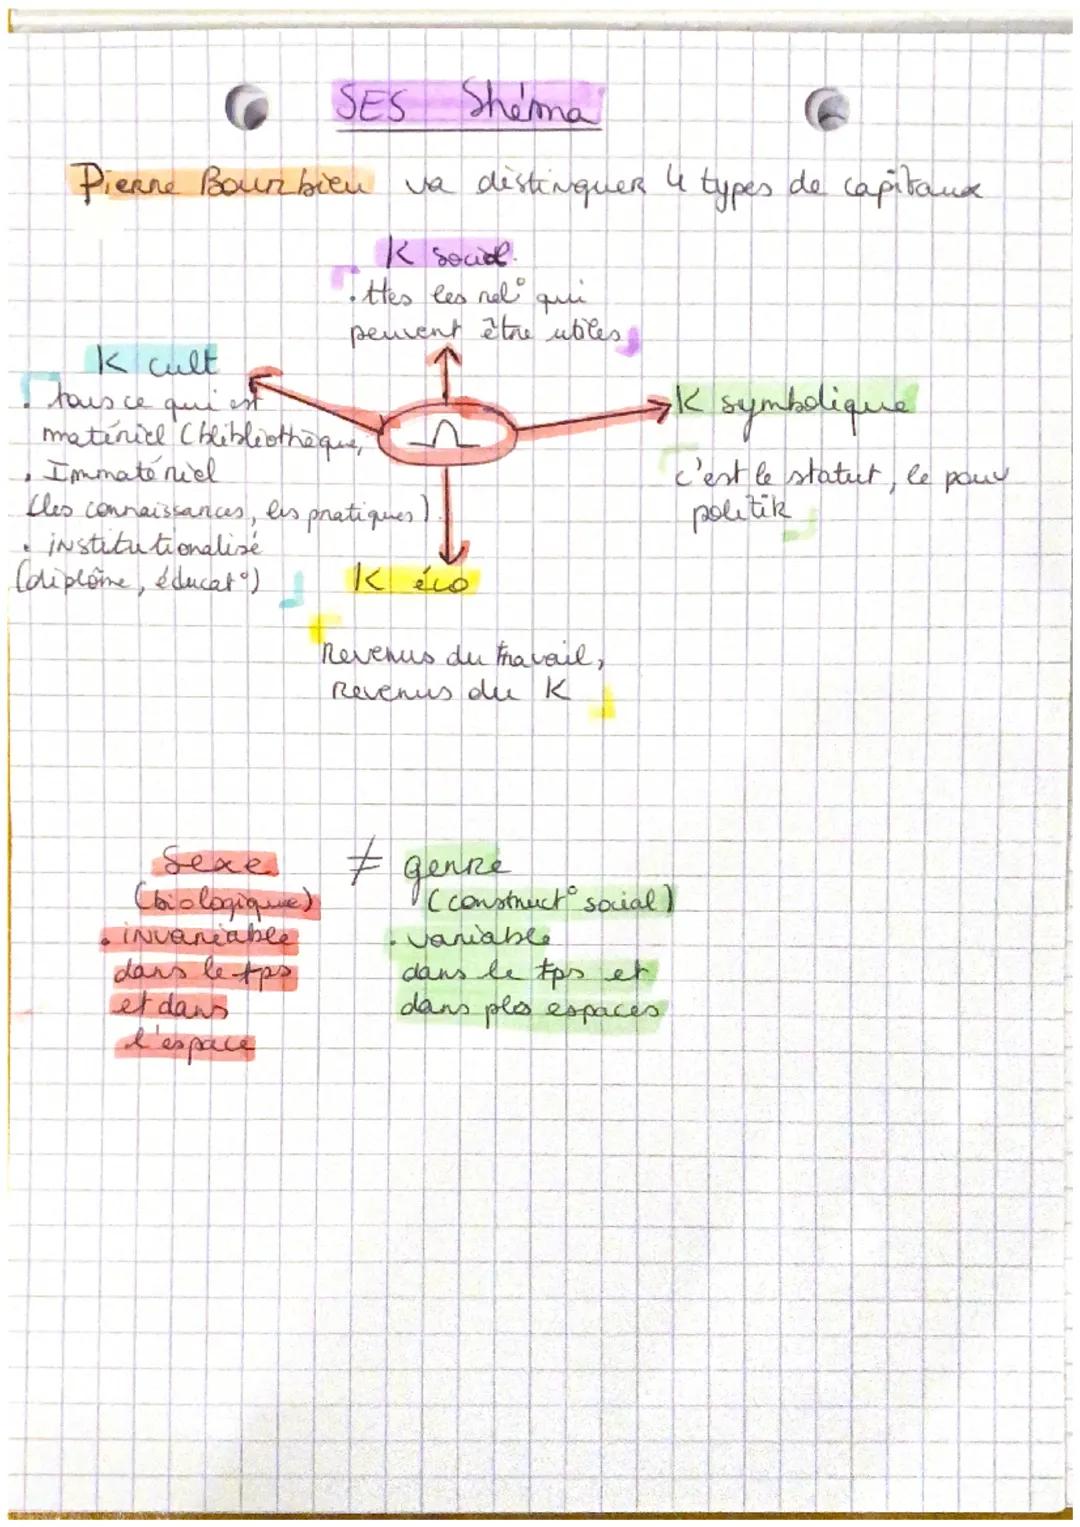 SES Shéma
Pierre Bourbieu va distinguer 4 types de capitaux
K social.
. ttes les rel° qui
peuvent être utiles
K cult
. tous ce qui est
matériel (blibliothèque,
. Immatériel
(les connaissances, les pratiques)
. institutionalisé
(diplôme, éducat°)
K symbolique
c'est le statut, le pouv
politik
K éco
Revenus du travail,
Revenus du K
Sexe ≠ genre
(biologique)
. invariable
dans le tps
et dans
l'espace
(construct° social)
. variable
dans le tps et
dans pls espaces